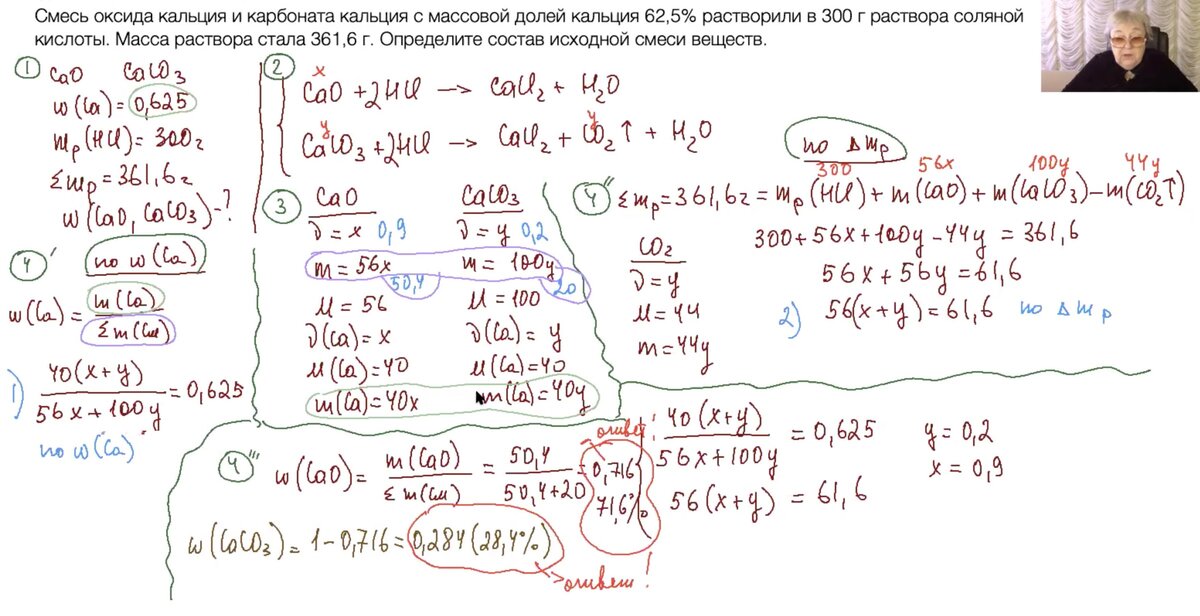 Смесь оксида кальция и карбоната кальция с массовой долей кальция 62,5% растворили в 300 г раствора соляной
кислоты. Масса раствора стала 361,6 г. Определите состав исходной смеси веществ.
1 CaO CaCO₃
w(Ca) = 0,625
mр(HCl) = 300г
Σmр = 361,6г
w(CaO, CaCO₃) - ?
2
x
CaO + 2HCl → CaCl₂ + H₂O
y y
CaCO₃ + 2HCl → CaCl₂ + CO₂↑ + H₂O
3
CaO CaCO₃
ν = x 0,9 ν = y 0,2
m = 56x m = 100y
50,4 20
M = 56 M = 100
ν(Ca) = x ν(Ca) = y
M(Ca) = 40 M(Ca) = 40
m(Ca) = 40x m(Ca) = 40y
4' по w(Ca)
w(Ca) = m(Ca) / Σm(см)
1) 40(x+y) / 56x + 100y = 0,625
по w(Ca)
по Δmр
300 56x 100y 44y
4'' Σmр = 361,6г = mр(HCl) + m(CaO) + m(CaCO₃) – m(CO₂↑)
CO₂
ν = y
M = 44
m = 44y
300 + 56x + 100y – 44y = 361,6
56x + 56y = 61,6
2) 56(x+y) = 61,6 по Δmр
4''' w(CaO) = m(CaO) / Σm(см) = 50,4 / 50,4 + 20 = 0,716
71,6%
ответ!
w(CaCO₃) = 1 – 0,716 = 0,284 (28,4%)
ответ!
40(x+y) / 56x + 100y = 0,625
56(x+y) = 61,6
y = 0,2
x = 0,9